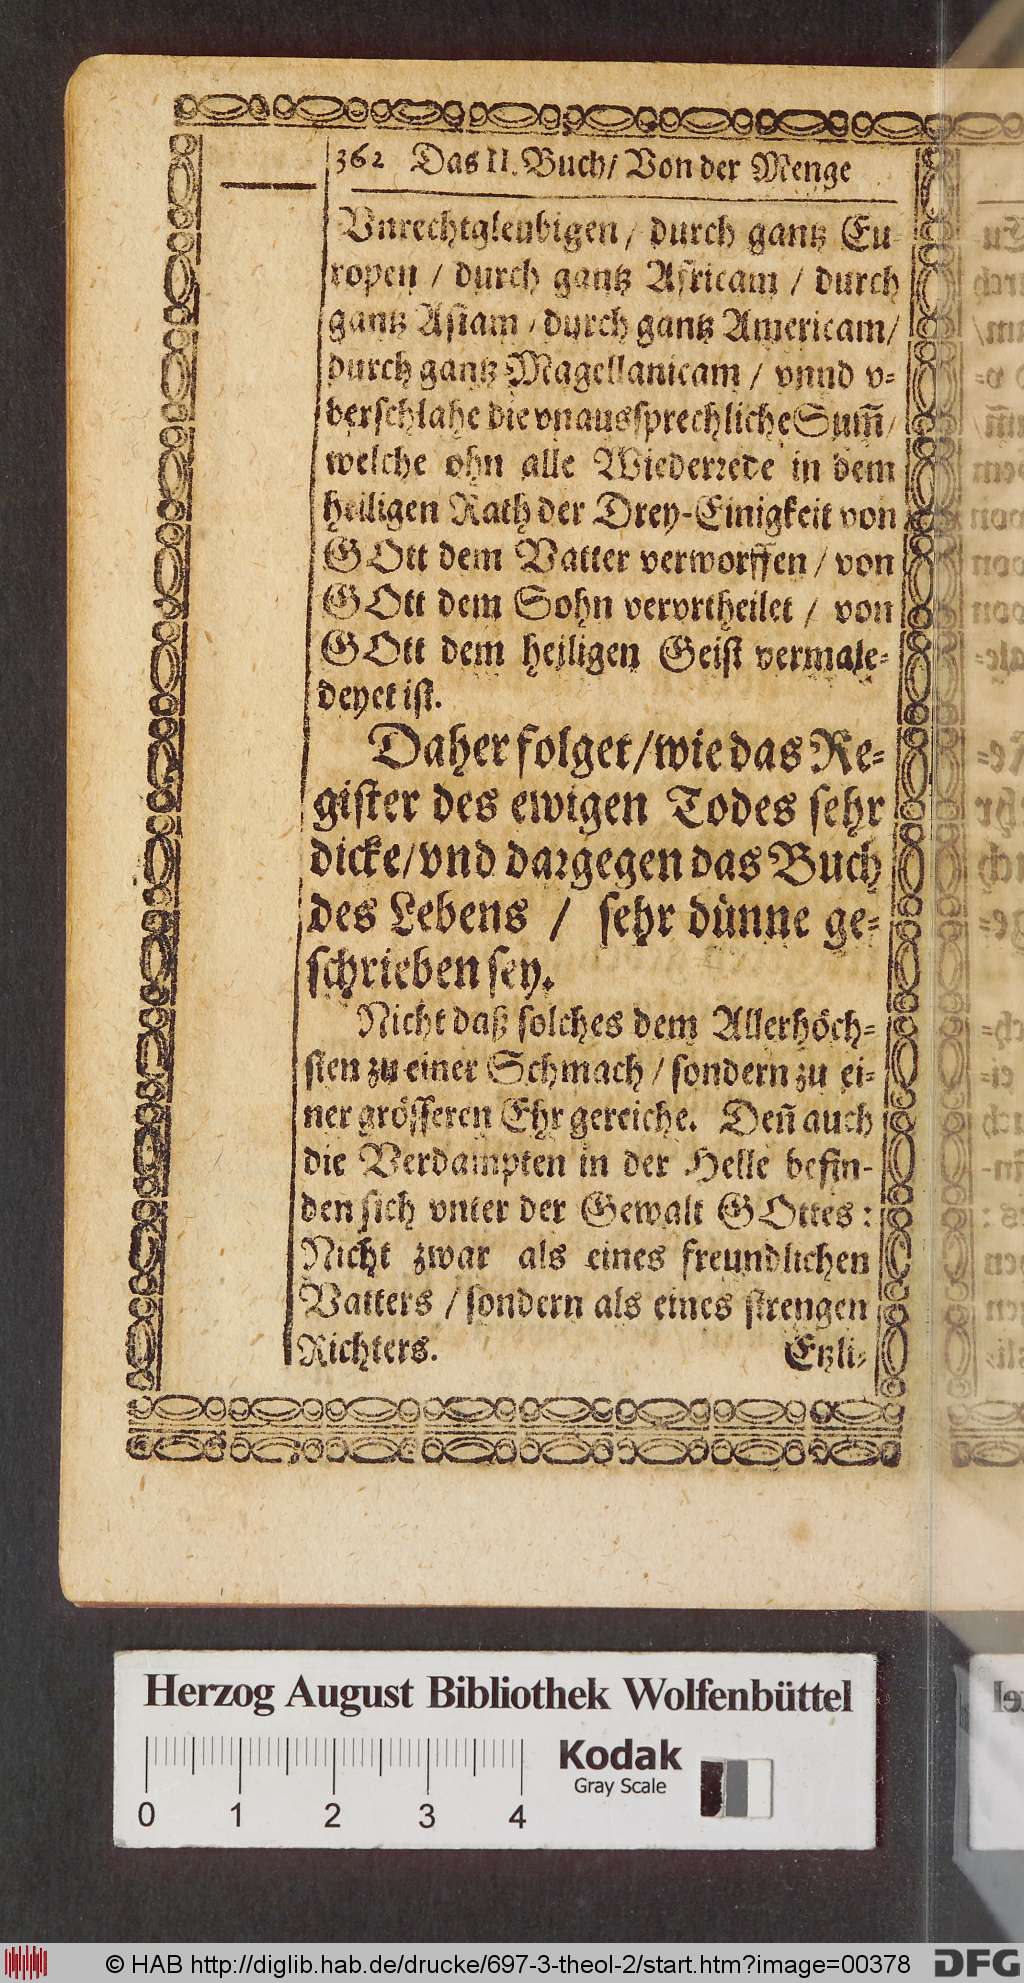 362 Das II. Buch/ Von der Menge
Vnrechtgleubigen / durch gantz Eu-
ropen / durch gantz Africam / durch
gantz Asiam / durch gantz Americam/
durch gantz Magellanicam / vnnd v-
berschlahe die vnaussprechliche Sum̃/
welche ohn alle Wiederrede in dem
heiligen Rath der Drey-Einigkeit von
GOtt dem Vatter verworffen / von
GOtt dem Sohn vervrtheilet / von
GOtt dem heiligen Geist vermale-
deyet ist.
Daher folget/wie das Re-
gister des ewigen Todes sehr
dicke/vnd dargegen das Buch
des Lebens / sehr dünne ge-
schrieben sey.
Nicht daß solches dem Allerhöch-
sten zu einer Schmach / sondern zu ei-
ner grösseren Ehr gereiche. Deñ auch
die Verdampten in der Helle befin-
den sich vnter der Gewalt GOttes:
Nicht zwar als eines freundlichen
Vatters / sondern als eines strengen
Richters. Etzli-
Herzog August Bibliothek Wolfenbüttel
Kodak
Gray Scale
0 1 2 3 4
© HAB http://diglib.hab.de/drucke/697-3-theol-2/start.htm?image=00378
DFG